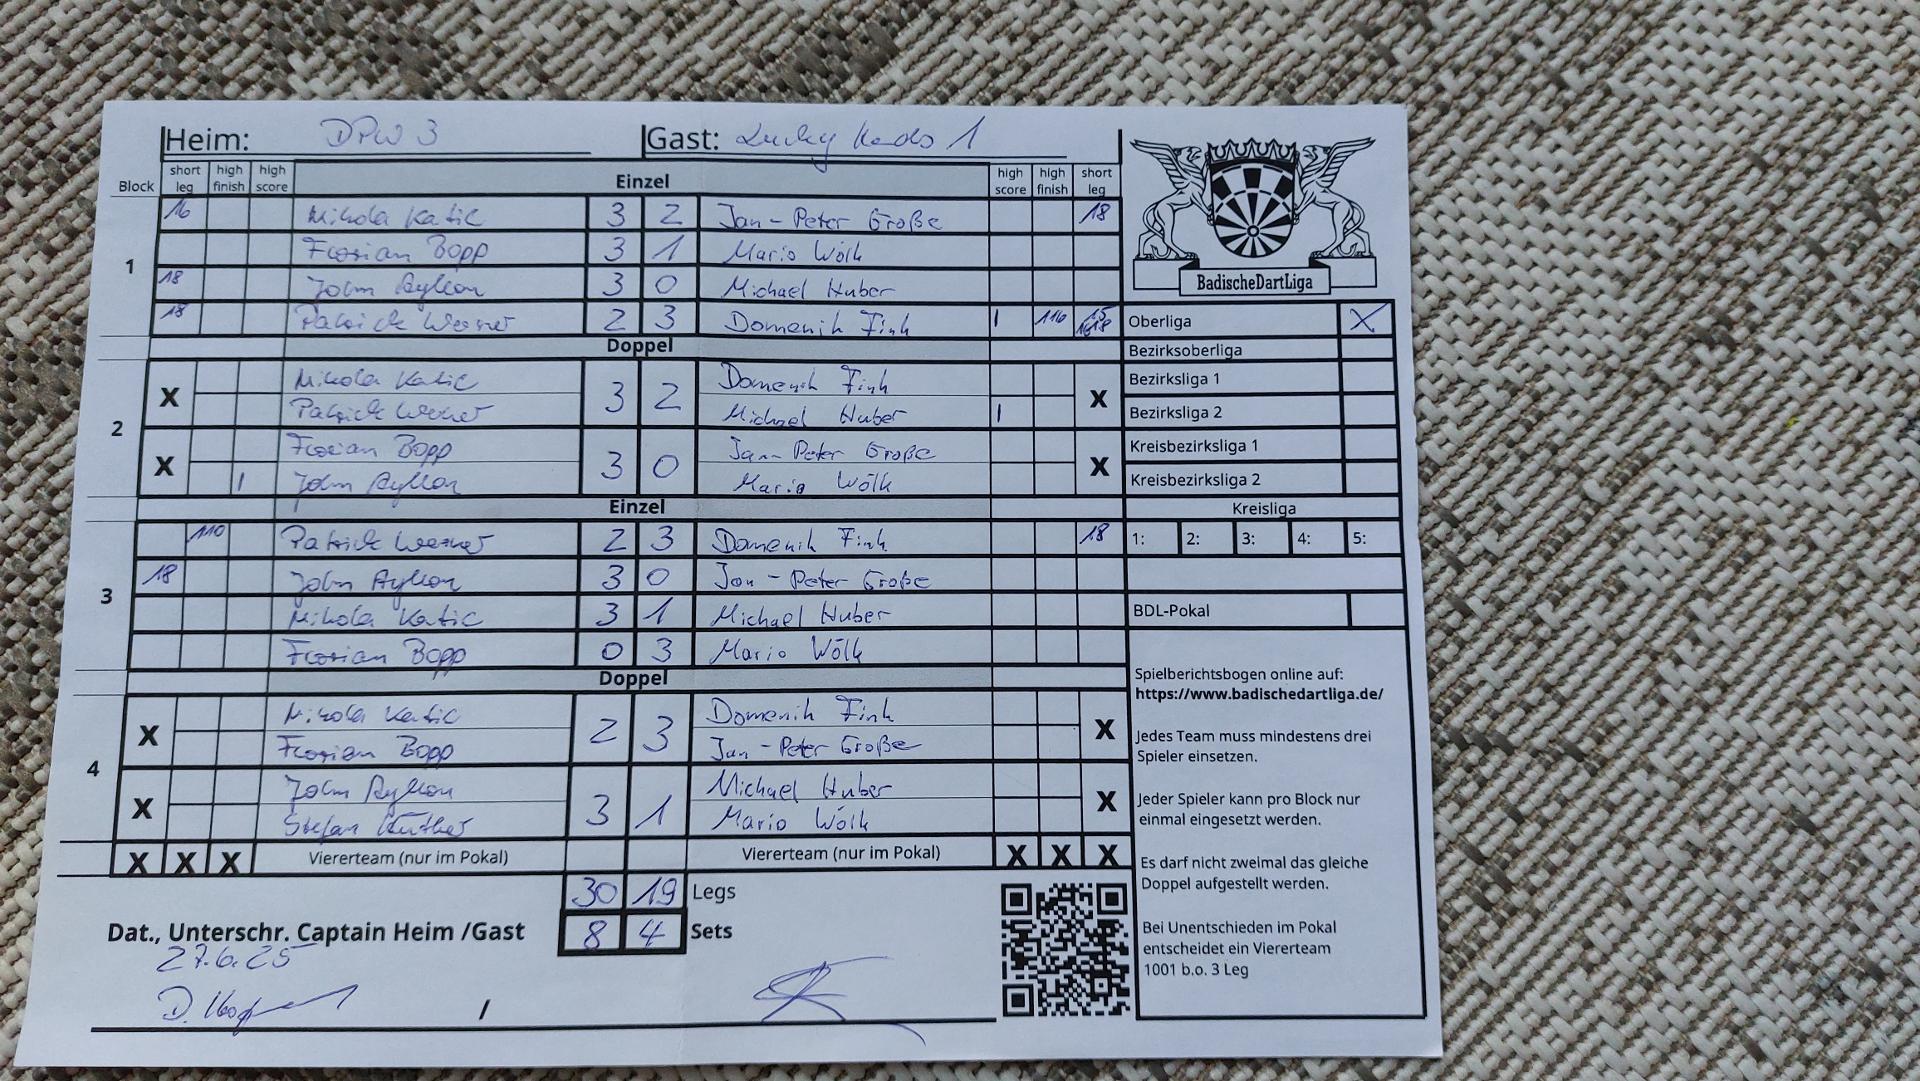 Heim: DPW 3 Gast: Lucky Kado 1
Block short leg high finish high score Einzel high score high finish short leg
1
16 Nikola Katic 3 2 Jan-Peter Große 18
Florian Bopp 3 1 Mario Wölk
18 John Aylkon 3 0 Michael Huber
18 Patrick Werner 2 3 Domenik Fink 1 116 18
Doppel
2
X Nikola Katic 3 2 Domenik Fink X
Patrick Werner Michael Huber 1
X Florian Bopp 3 0 Jan-Peter Große X
1 John Aylkon Mario Wölk
Einzel
3
110 Patrick Werner 2 3 Domenik Fink 18
18 John Aylkon 3 0 Jan-Peter Große
Nikola Katic 3 1 Michael Huber
Florian Bopp 0 3 Mario Wölk
Doppel
4
X Nikola Katic 2 3 Domenik Fink X
Florian Bopp Jan-Peter Große
X John Aylkon 3 1 Michael Huber X
Stefan Mario Wölk
X X X Viererteam (nur im Pokal) Viererteam (nur im Pokal) X X X
30 19 Legs
8 4 Sets
Dat., Unterschr. Captain Heim /Gast
27.6.25
/
BadischeDartLiga
Oberliga X
Bezirksoberliga
Bezirksliga 1
Bezirksliga 2
Kreisbezirksliga 1
Kreisbezirksliga 2
Kreisliga
1: 2: 3: 4: 5:
BDL-Pokal
Spielberichtsbogen online auf:
https://www.badischedartliga.de/
Jedes Team muss mindestens drei
Spieler einsetzen.
Jeder Spieler kann pro Block nur
einmal eingesetzt werden.
Es darf nicht zweimal das gleiche
Doppel aufgestellt werden.
Bei Unentschieden im Pokal
entscheidet ein Viererteam
1001 b.o. 3 Leg